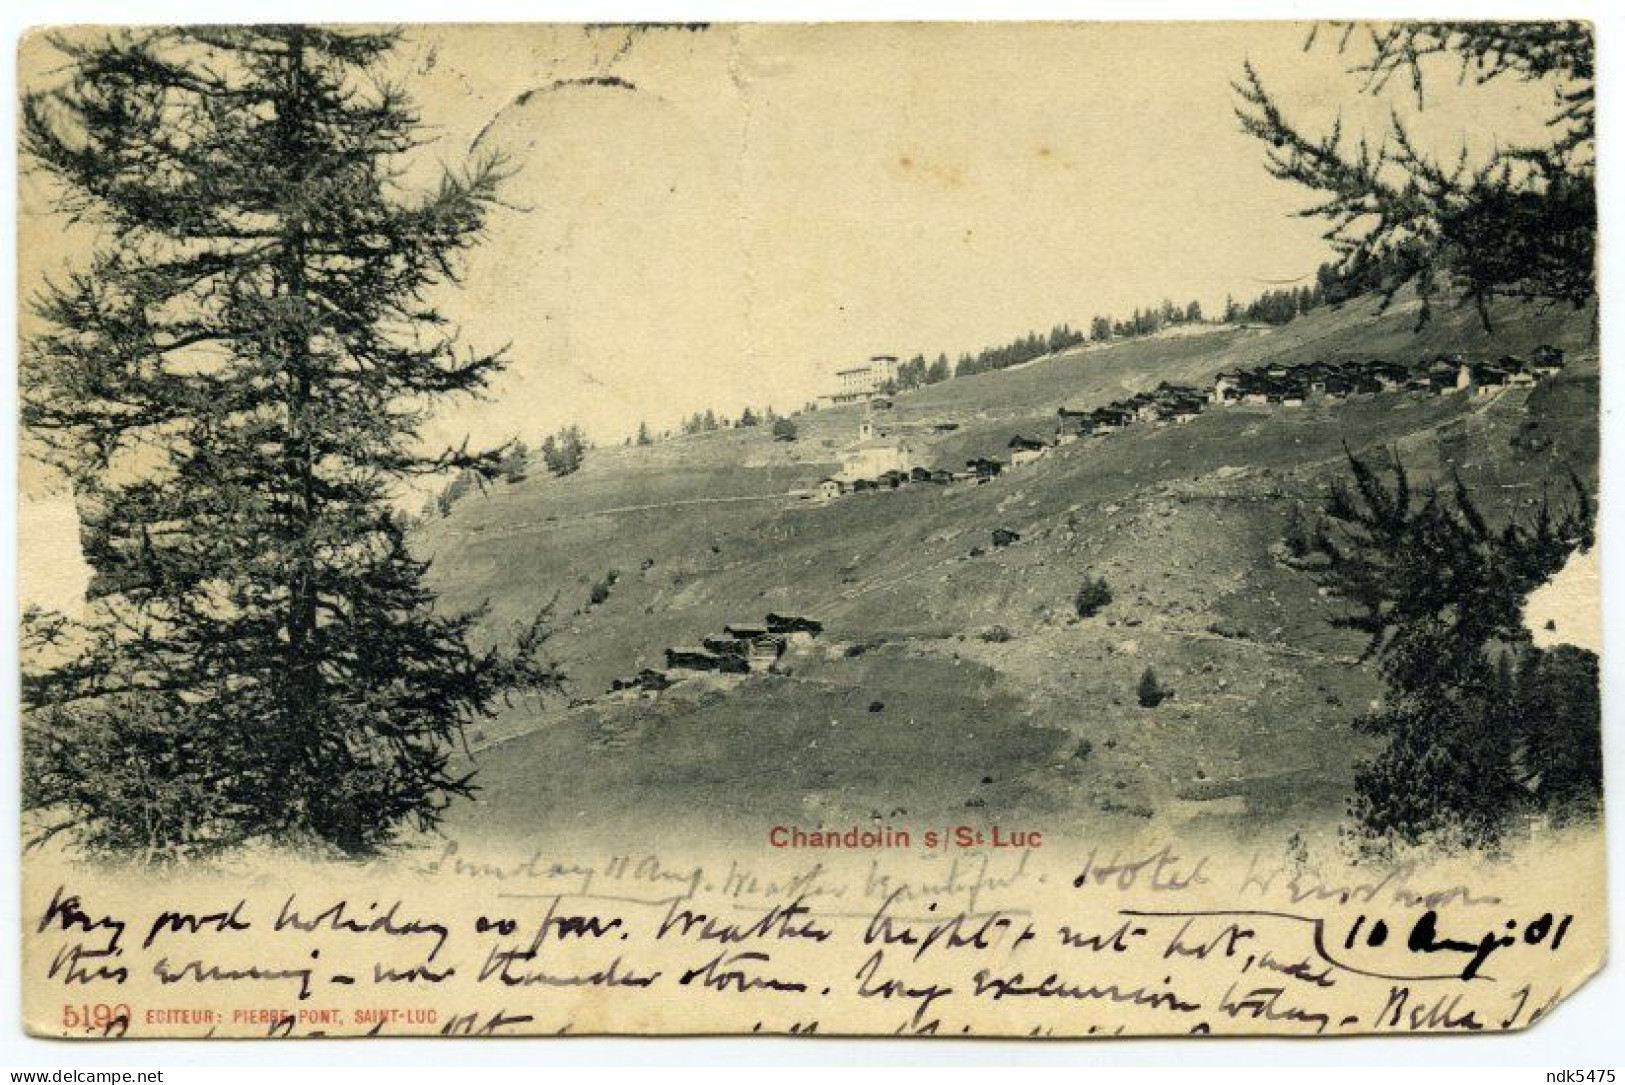 Chandolin s/St Luc
Sunday 11 Aug. Weather beautiful. Hotel Weisshorn
Very good holiday so far. Weather bright & not hot, until 10 Aug: 01
this evening – now thunder storm. Long excursion today – Bella
5199 EDITEUR: PIERRE PONT, SAINT-LUC
delcampe.net
ndk5475